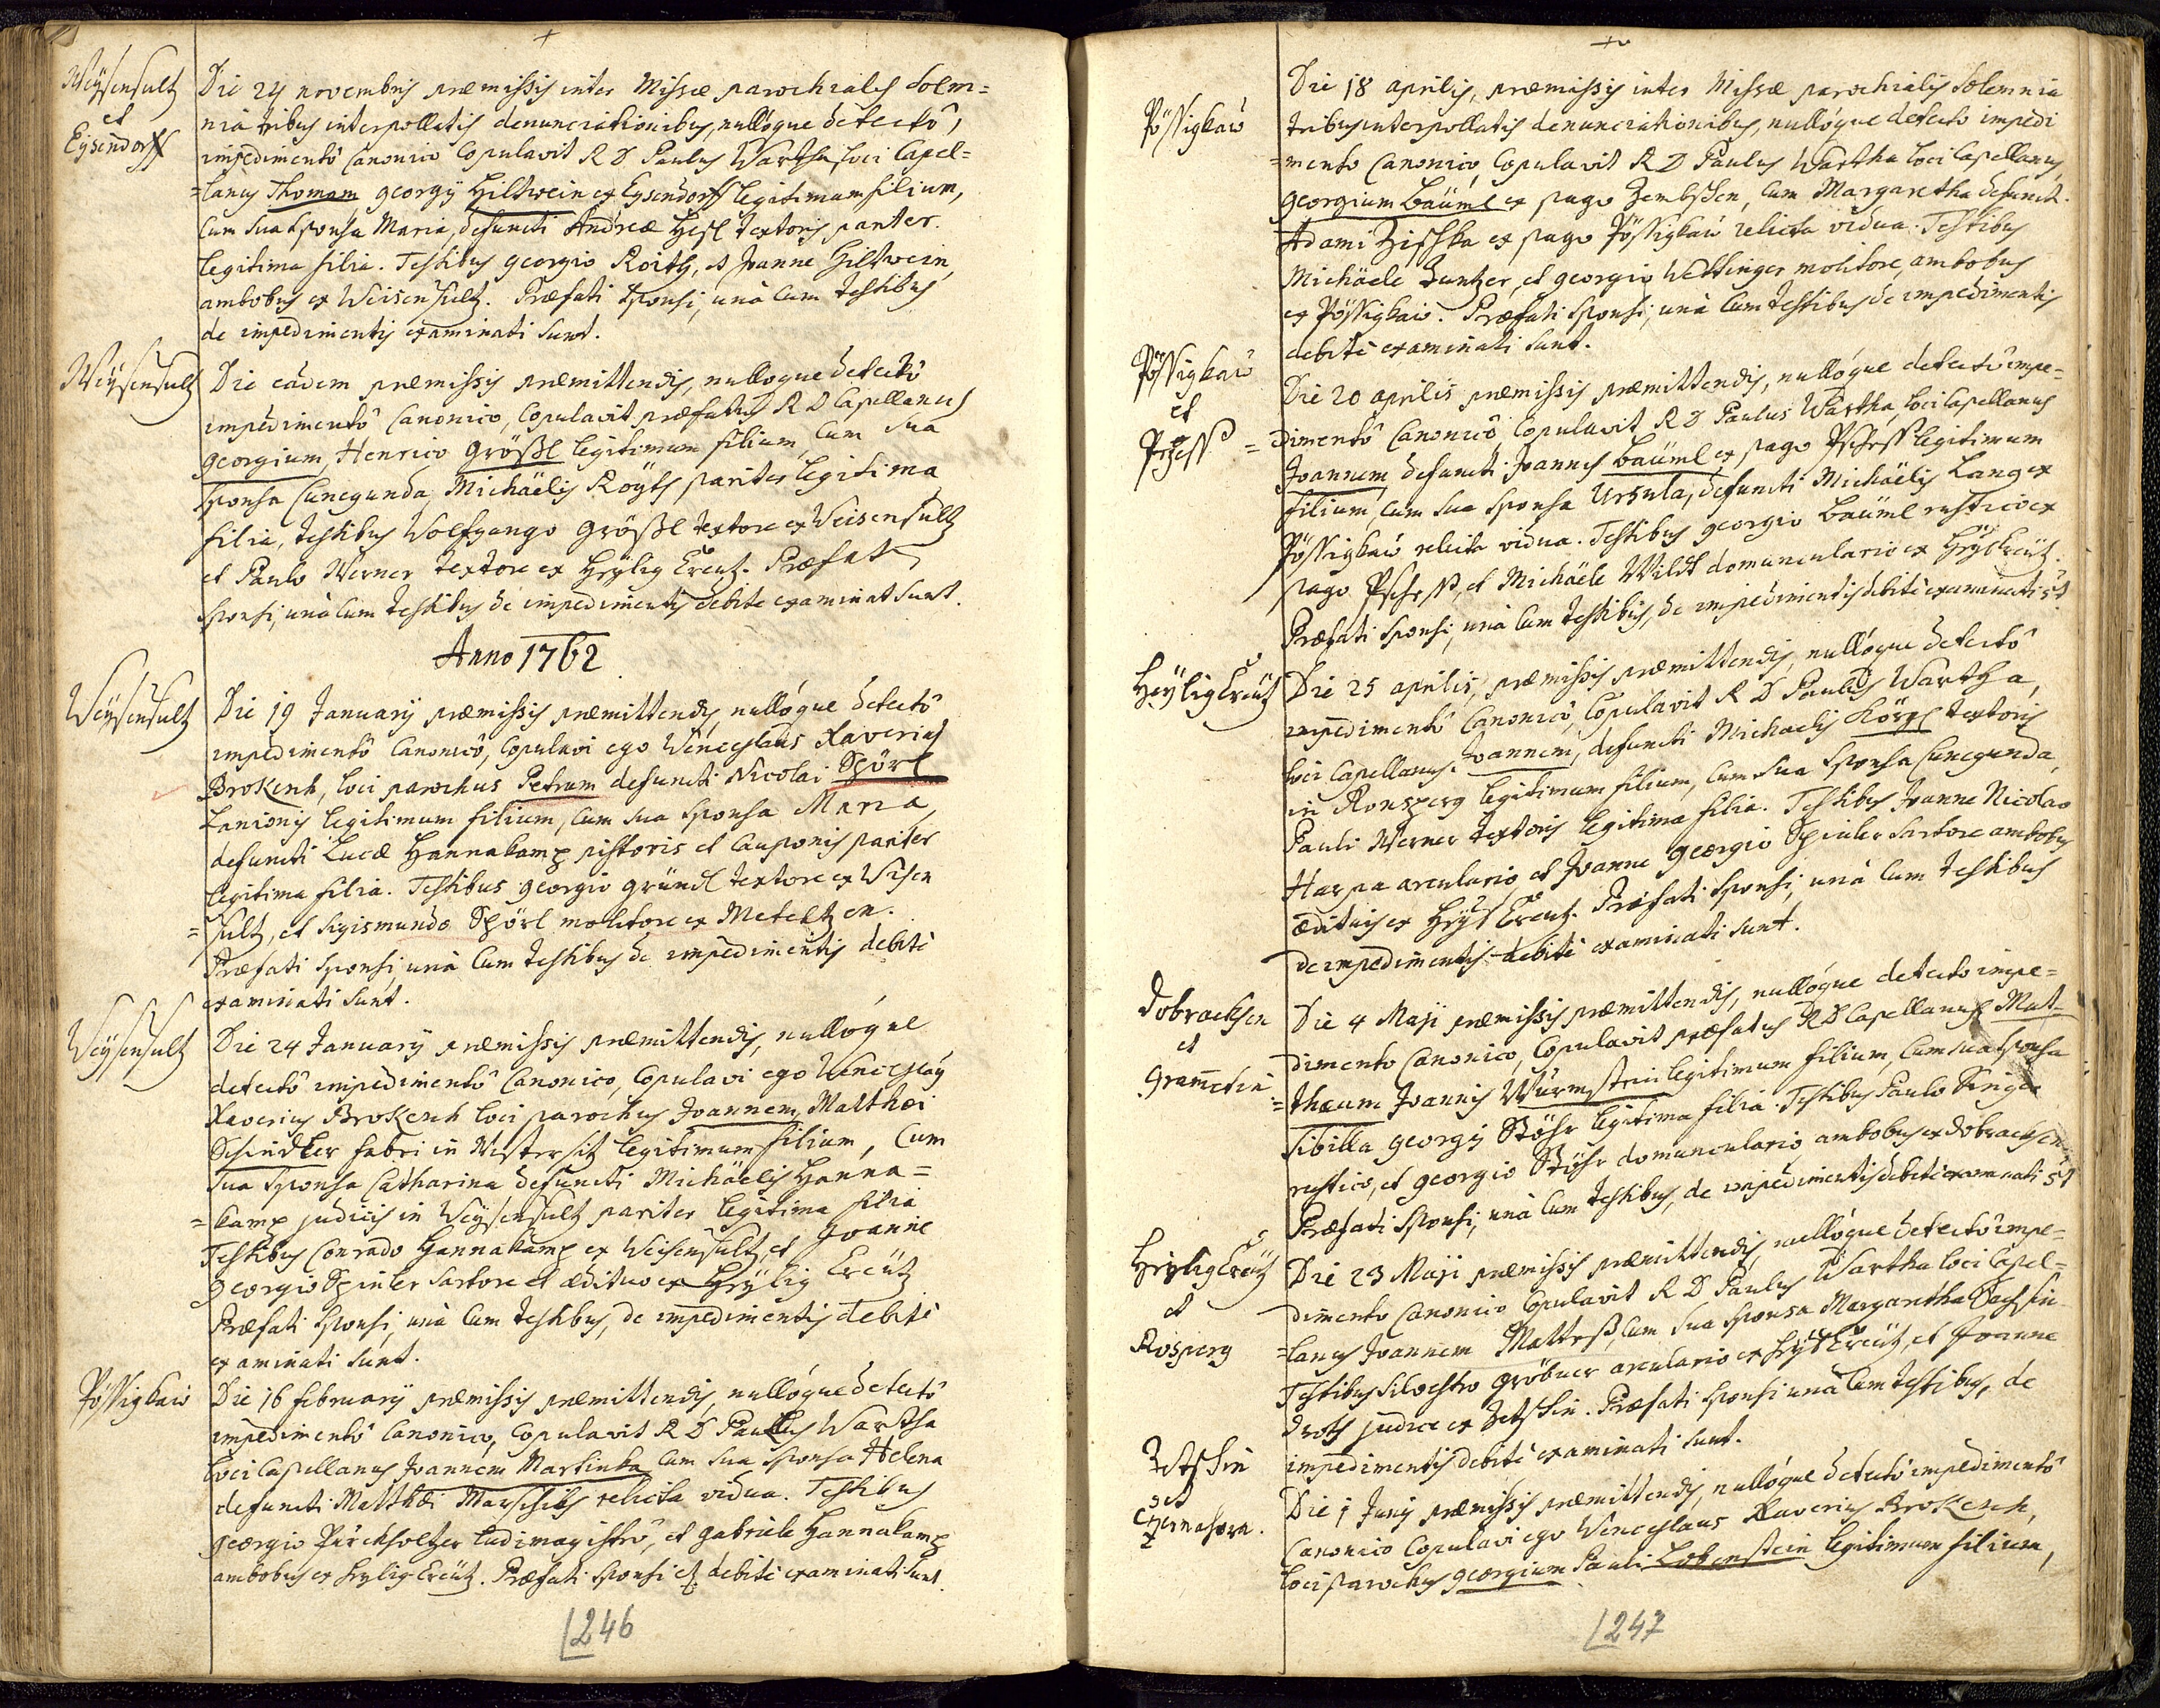 Weÿsensultz
et
Eysendorff
Die 24 novembris præmissis inter Missæ parochialis Solem=
nia tribus interpollatis denunciationibus, nullòque detectô,
impedimentô Canonico Copulavit R D Paulus Wartha, loci Capel=
=lanus Thomam georgÿ Hiltwein ex Eysendorff legitimum filium,
Cum sua Sponsa Maria, defuncti Andreæ Hesl textoris pariter.
legitima filia. Testibus georgio Roith, et Joanne Hiltwein,
ambobus ex Weisensultz. Præfati Sponsi, unà Cum testibus
de impedimentis examinati Sunt.
Weÿsensultz
Die eâdem præmissis præmittendis, nulloque detectô
impedimentô Canonico, Copulavit præfatus R D Capellanus
georgium, Henrico Größl legitimum filium, Cum Sua
Sponsa Cunegunda, Michäelis Röyth pariter legitima
filia, testibus Wolfgango Größl textore ex Weisensultz
et Paulo Werner textore ex Heÿlig Creutz. Præfati
Sponsi, unà Cum testibus de impedimentis debite examinat Sunt.
Anno 1762
Weÿsensultz
Die 19 Januarÿ præmissis præmittendis, nullóque detectô
impedimentô Canonicô, Copulavi ego Wenceslaus Xaverius
Brokenh, loci parochus Petrum defuncti Nicolai Spörl
Lanionis legitimum filium, Cum Sua Sponsa Maria,
defuncti Lucæ Hannakamp pistoris et Cauponis pariter
legitima filia. Testibus georgio gründl textore ex Weisen
=sultz, et Sigismundo Spörl molitore ex Meteltzen.
Præfati Sponsi, unà Cum testibus de impedimentis debitè
examinati Sunt.
Weÿsensultz
Die 24 Januarÿ præmissis præmittendis, nullòque
detectô impedimentô Canonico, Copulavi ego Wenceslaÿ
Xaverius Brokenh loci parochus Joannem, Matthæi
Schindler fabri in Mistersitz legitimum filium, Cum
Sua Sponsa Catharina defuncti Michäelis Hanna=
=kamp judicis in Weÿsensultz pariter legitima filia
Testibus Conrado Hannakamp ex Weisensultz, et Joanne
georgio Spinler Sartore et ædituo ex Heÿlig Creütz
Præfati Sponsi, unà Cum testibus, de impedimentis debitè
examinati Sunt.
Pössigkaù
Die 16 februarÿ præmissis præmittendis, nullòque detectô
impedimentô Canonico, Copulavit R D Paulus Wartha
loci Capellanus Joannem Martinka Cum Sua Sponsa Helena
defuncti Matthæi Marschik relicta vidua. Testibus
georgio Pürckholtzer Ludimagistrô, et gabriele Hannakamp
ambobus ex Heylig Creütz. Præfati Sponsi et debitè examinati Sunt.
246
Pössigkaù
Die 18 aprilis, præmissis inter Missæ parochialis Solemnia
tribus interpollatis denunciationibus, nullòque detecto impedi
=mento Canonicô, Copulavit R D Paulus Wartha loci Capellanus
georgium Bäuml ex pago Zembschen, Cum Margaretha defunct.
Adami Zischka ex pago Pössigkaù relicta vidua. Testibus
Michäele Zuntzer, et georgio Wettinger molitore, ambobus
ex Pössigkaù. Præfati Sponsi, unà Cum testibus de impedimentis
debitè examinati Sunt.
Pössigkaù
et
Pschess
Die 20 aprilis præmissis præmittendis, nullòque detectô impe=
=dimentô Canonicô, Copulavit R D Paulus Wartha, loci Capellanus
Joannem defuncti Joannis Bäuml ex pago Pschess legitimum
filium, Cum sua Sponsa Ursula, defuncti Michäelis Lang ex
Pössigkaù relicta vidua. Testibus georgio Bäuml rustico ex
pago Pschess, et Michäele Wildt domunculario ex Heylkreütz.
Præfati Sponsi, unà Cum testibus, de impedimentis debitè examinati st
Heÿlig Creutz
Die 25 aprilis, præmissis præmittendis, nullòque detectô
impedimentô Canonicô, Copulavit R D Paulus Wartha,
loci Capellanus. Joannem, defuncti Michaelis Körzl textoris
in Ronsperg legitimum filium, Cum Sua Sponsa Cunegunda,
Pauli Werner textoris legitima filia. Testibus Joanne Nicolao
Harpa arculario, et Joanne georgio Spinler Sartore ambobus
ædituis ex Heyl Creutz. Præfati Sponsi, unà Cum testibus
de impedimentis debitè examinati Sunt.
Dobracksen
et
Grametin
Die 4 Maji præmissis præmittendis, nullòque detecto impe=
dimento Canonico, Copulavit præfatus R D Capellanus Mat=
=thæum Joannis Würmstein legitimum filium, Cum sua Sponsa
Sibilla georgÿ Stöhr legitima filia. Testibus Paulo Singer
rustico, et georgio Stöhr domunculario ambobus ex Dobracksen
Præfati Sponsi, unà Cum testibus, de impedimentis debitè examinati st
Heylig Creutz
et
Rosperg
Die 23 Maji præmissis præmittendis, nullòque detectô impe=
dimento Canonico Copulavit R D Paulus Wartha loci Capel=
=lanus Joannem Matteß, Cum sua Sponsa Margaretha
Testibus Silvestro gröbner arculario ex Heyl Creütz, et Joanne
Droth judice ex Zetschin. Præfati Sponsi unà Cum testibus, de
impedimentis debitè examinati Sunt.
Zetschin
et
Czernahora.
Die 1 Junÿ præmissis præmittendis, nullòque detectô impedimentô
Canonico Copulavi ego Wenceslaus Xaverius Brokenh,
loci parochus georgium Pauli Lobenstein legitimum filium,
247